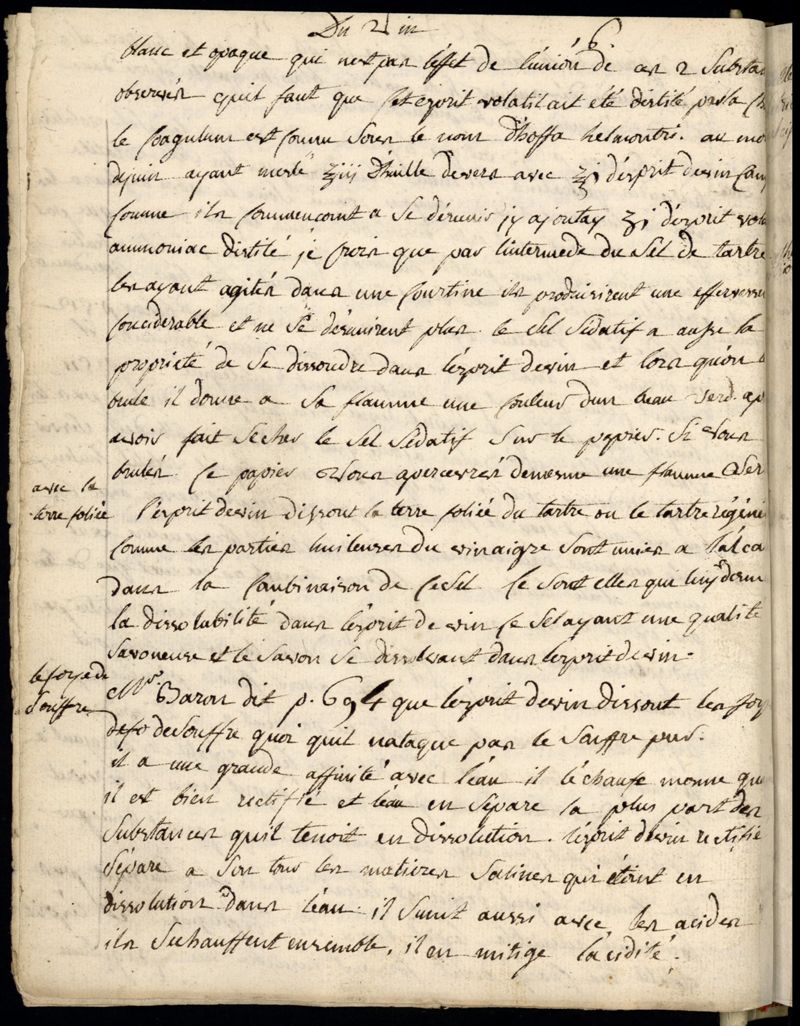 Du Vin
6
blanc et opaque qui nest pas l'effet de l'union de ces 2 Substan
observés quil faut que cet esprit volatil ait eté distilé par la
le Coagulum est connu sous le nom D'hoffa helmontii. au
dejuin ayant meslé ʒiii D'huille de vers avec ʒi d'esprit de vin
comme ils commencoint a se désunir j'y ajoutay ʒi d'esprit vola
ammoniac distilé je crois que par l'intermede du Sel de tartre
les ayant agités dans une courtine ils produisirent une efferves
considerable et ne se désunirent plus. le Sel Sédatif a aussi la
proprieté de se dissoudre dans l'esprit de vin et lors qu'on
brule il donne a Sa flamme une couleur d'un beau verd. ap
avoir fait Secher le Sel Sédatif Sur le papier. Si vous
brulés ce papier vous apercevrés de mesme une flamme verd
avec la
terre foliée
l'esprit de vin dissout la terre foliée du tartre ou le tartre régéné
comme les parties huileuses du vinaigre Sont unies a l'alca
dans la combinaison de ce Sel ce Sont elles qui luy donn
la dissolubilité dans l'esprit de vin ce Sel ayant une qualité
Savoneuse et le Savon se dissolvant dans l'esprit de vin.
le foye de
Souffre
Mr. Baron dit p. 694 que l'esprit de vin dissout les foy
de Souffre quoi quil nataque pas le Souffre pur.
il a une grande affinité avec l'eau il l'échaufe mesme qu
il est bien rectifié et l'eau en Sépare la plus part des
Substances quil tenoit en dissolution. l'esprit de vin rectifié
Sépare a Son tour les matieres Salines qui étoint en
dissolution dans l'eau. il S'unit aussi avec les acides
ils S'échauffent ensemble, il en mitige l'acidité.